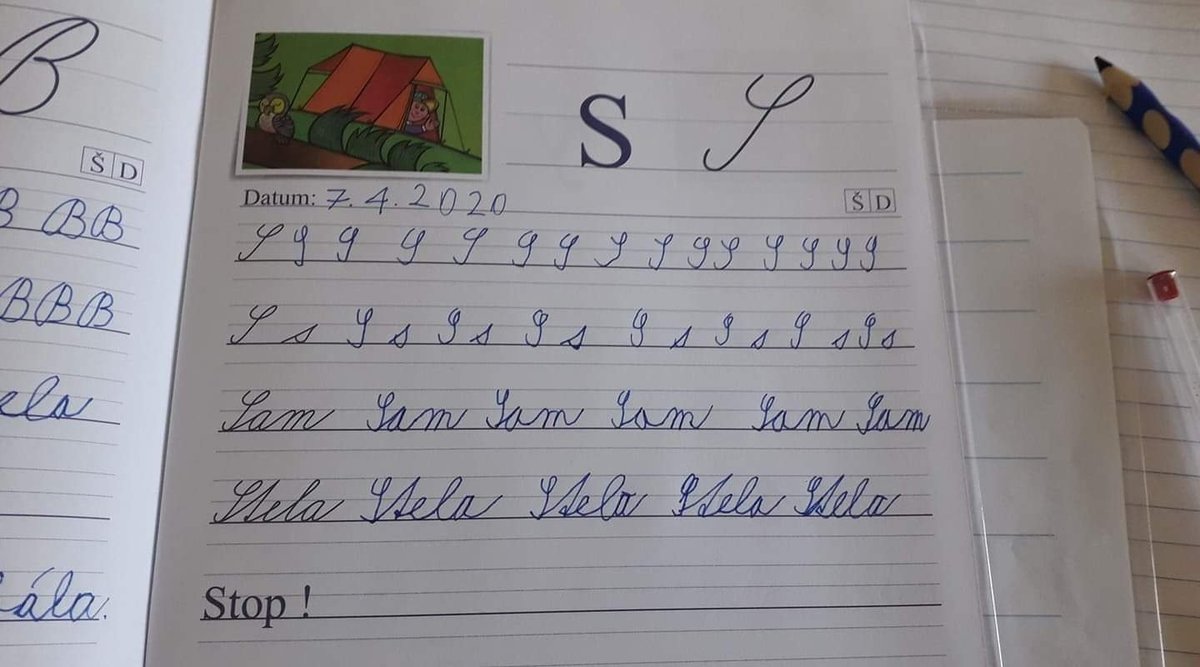 B
Š D
B B B
B B B
ela
ála.
S S
Datum: 7.4.2020 Š D
S S S S S S S S S S S S S S S
S s S s S s S s S s S s S s S s
Sam Sam Sam Sam Sam Sam
Stela Stela Stela Stela Stela
Stop !